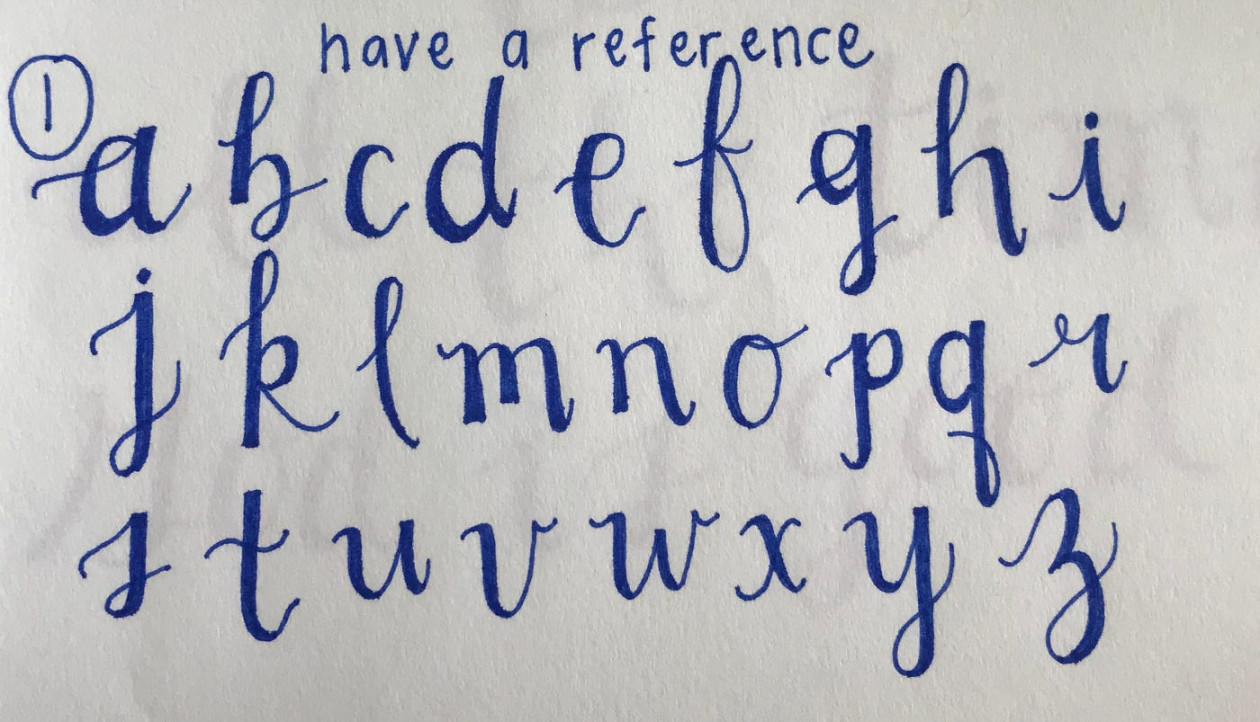 have a reference
1 a b c d e f g h i
j k l m n o p q r
s t u v w x y z